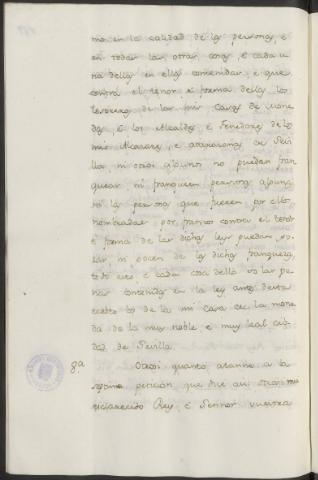 mo en la calidad de las personas, e
en todas las otras cosas, e cada u
na dellas en ellas contenidas, e que
contra el tenor e forma dellas los
tesoreros de las mis Casas de mone
das, e los Alcaldes, e Tenedores de los
mis Alcazares, e atarazanas de Sevi
lla, ni otros algunos no puedan fran
quear, ni franqueen personas algunas
ni las personas que fueren por ellos
nombradas por francos contra el tenor
e forma de las dichas leys puedan go
zar, ni gocen de las dichas franquezas,
todo esto e cada cosa dello so las pe
nas contenidas en la ley antes desta
ecebto los de la mi Casa de la mone
da de la muy noble e muy leal cib
dad de Sevilla.
8ª Otrosi quanto atanne a la
petición que dice asi
esclarecido Rey, e Sennor vuestra